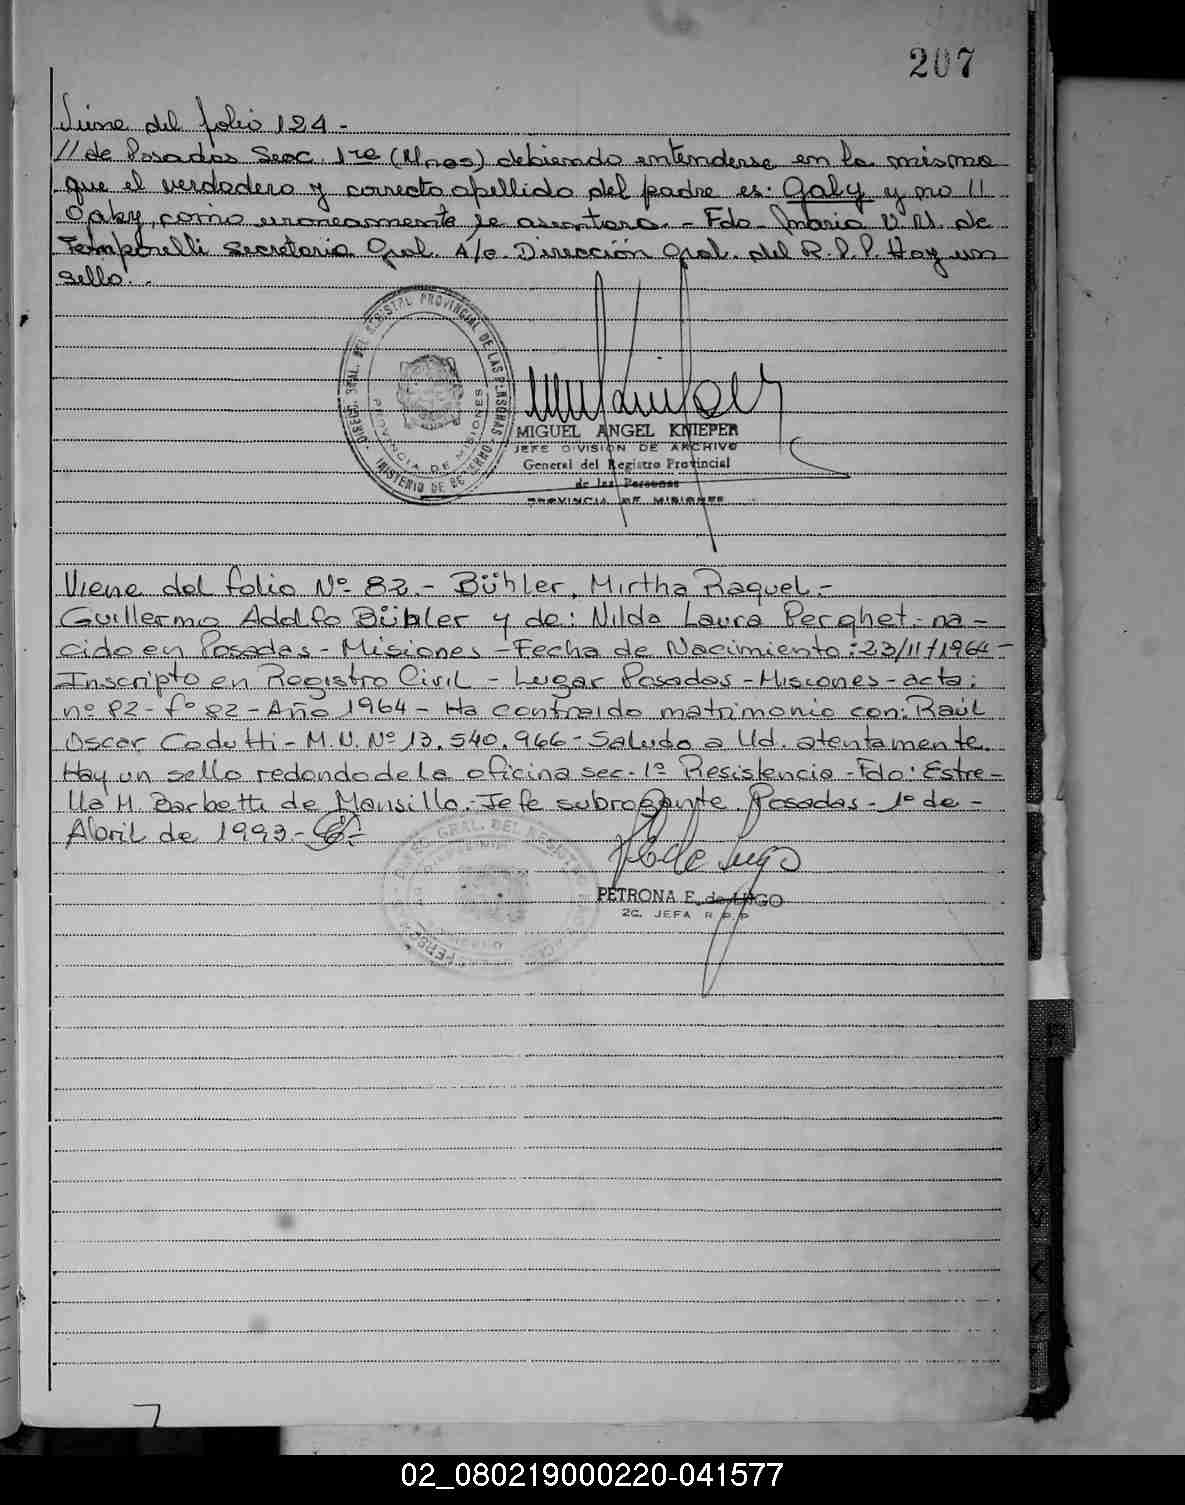 207
Viene del folio 124 -
// de Posadas Secc. 1ra (Mnes) debiendo entenderse en la misma
que el verdadero y correcto apellido del padre es: Galy y no //
como erroneamente se asentara. - Fdo María V. M. de
Secretaria Gral. A/c Dirección Gral. del R.P.P. Hay un
sello..
DIREC. GRAL. DEL REGISTRO PROVINCIAL DE LAS PERSONAS
PROVINCIA DE MISIONES
MINISTERIO DE GOBIERNO
MIGUEL ANGEL KNIEPER
JEFE DIVISION DE ARCHIVO
General del Registro Provincial
de las Personas
PROVINCIA DE MISIONES
Viene del folio Nº 82. - Bühler, Mirtha Raquel. -
Guillermo Adolfo Bühler y de: Nilda Laura Perghet. - na -
cido en Posadas - Misiones - Fecha de Nacimiento: 23/11/1964 -
Inscripto en Registro Civil - Lugar Posadas - Misiones - acta:
nº 82 - fº 82 - Año 1964 - Ha contraido matrimonio con: Raúl
Oscar Codutti - M.U. Nº 13.540.966 - Saludo a Ud. atentamente.
Hay un sello redondo de la oficina sec. 1ª Resistencia - Fdo: Estre -
lla M. Barbetti de Mansilla. - Jefe subrogante. Posadas - 1º de -
Abril de 1993. -
PETRONA E. de LUGO
2C. JEFA R.P.P
02_080219000220-041577